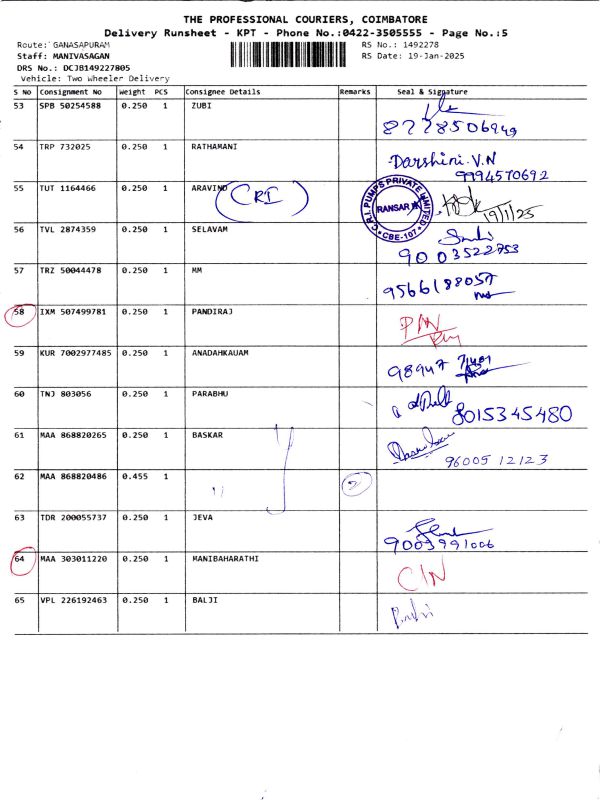 THE PROFESSIONAL COURIERS, COIMBATORE
Delivery Runsheet - KPT - Phone No.:0422-3505555 - Page No.:5
Route: GANASAPURAM RS No.: 1492278
Staff: MANIVASAGAN RS Date: 19-Jan-2025
DRS No.: DCJB149227805
Vehicle: Two Wheeler Delivery
S No Consignment No Weight PCS Consignee Details Remarks Seal & Signature
53 SPB 50254588 0.250 1 ZUBI
8778506949
54 TRP 732025 0.250 1 RATHAMANI Darshini. V.N
9994570692
55 TUT 1164466 0.250 1 ARAVIND (CRI) C.R.I. PUMPS PRIVATE LIMITED RANSAR CBE-107. 19/1/25
56 TVL 2874359 0.250 1 SELAVAM
9003522753
57 TRZ 50044478 0.250 1 MM
9566188057
58 IXM 507499781 0.250 1 PANDIRAJ
59 KUR 7002977485 0.250 1 ANADAHKAUAM
98947
60 TNJ 803056 0.250 1 PARABHU
8015345480
61 MAA 868820265 0.250 1 BASKAR
96005 12123
62 MAA 868820486 0.455 1 " 2
63 TDR 200055737 0.250 1 JEVA
9003991006
64 MAA 303011220 0.250 1 MANIBAHARATHI C/N
65 VPL 226192463 0.250 1 BALJI